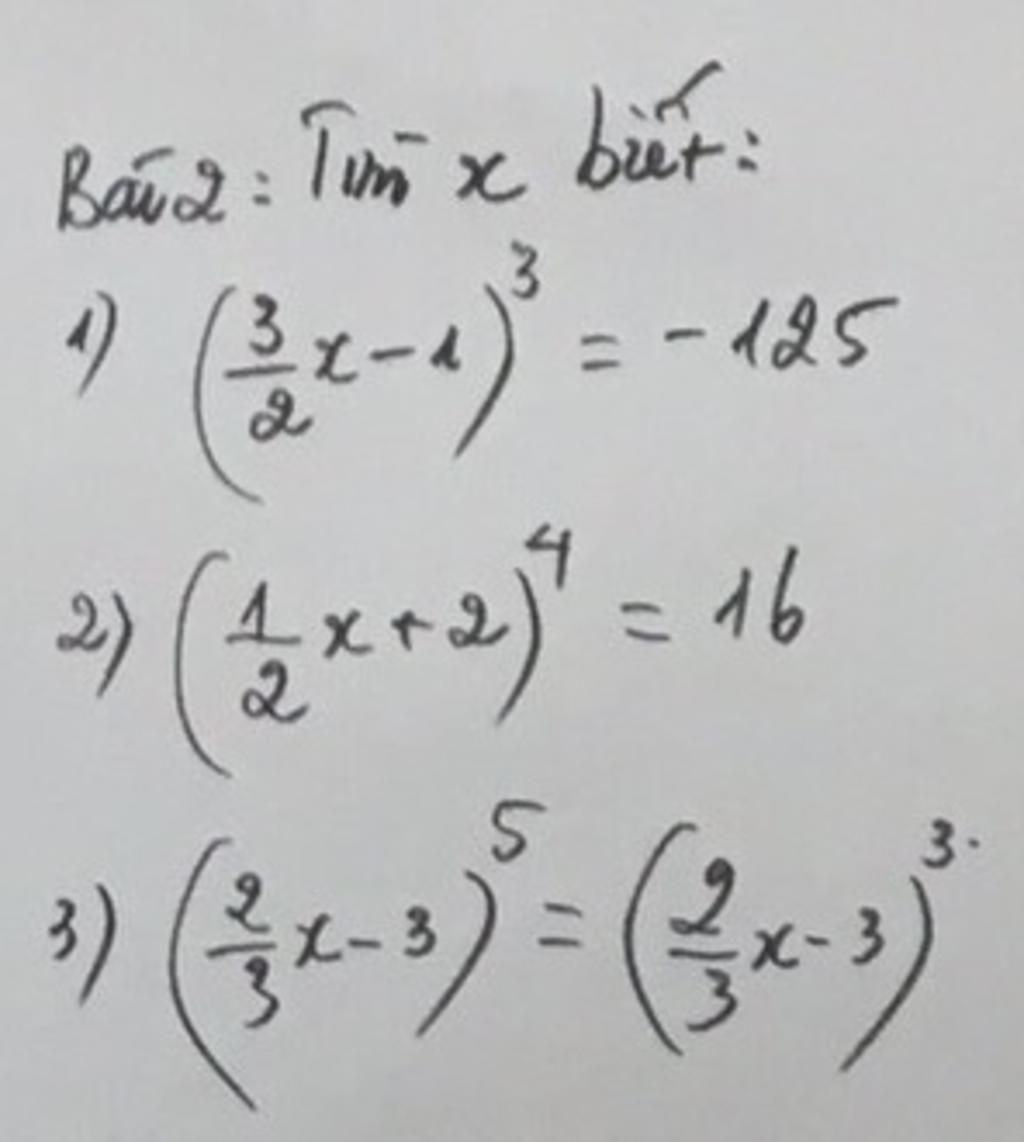 Bài 2: Tìm x biết:
1) (3/2 x - 1)^3 = -125
2) (1/2 x + 2)^4 = 16
3) (2/3 x - 3)^5 = (2/3 x - 3)^3.